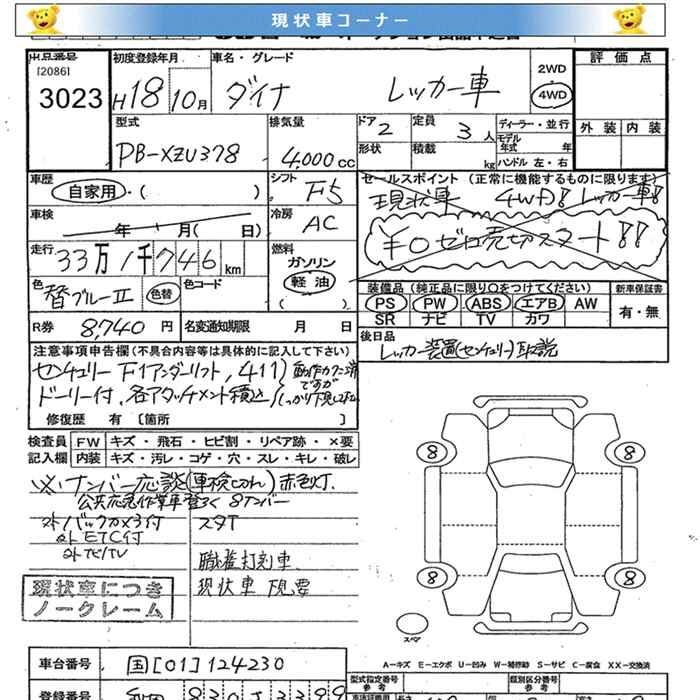 現状車コーナー
出品番号 初度登録年月 車名・グレード 2WD 評価点
[2086]
3023 H18 10月 ダイナ レッカー車 4WD
型式 排気量 ドア 定員 ディーラー・並行 外装 内装
2 3人 モデル年式 年
PB-XZU378 4,000cc 形状 積載 kg ハンドル 左・右
車歴 シフト F5 セールスポイント (正常に機能するものに限ります)
自家用・( ) 現状車 4WD!! レッカー車!!
車検 冷房 AC
年 月( 日) ¥0 ゼロ売切スタート!!
走行 燃料
33万1千746km ガソリン
軽油
( )
色 色コード 装備品 (純正品に限り○をつけてください) 新車保証書
替ブルーII 色替 PS PW ABS エアB AW 有・無
SR ナビ TV カワ
R券 8,740円 名変通知期限 月 日 後日品
レッカー装置(センチュリー)取説
注意事項申告欄 (不具合内容等は具体的に記入して下さい)
センチュリー F1アンダーリフト, 411)
ドーリー付, 各アタッチメント積込
修復歴 有 [箇所 ]
検査員 FW キズ・飛石・ヒビ割・リペア跡・×要
記入欄 内装 キズ・汚レ・コゲ・穴・スレ・キレ・破レ
※ナンバー応談(車検切れ)赤色灯.
公共応急作業車登録 8ナンバー
外バックカメラ付 スタT
外ETC付
外ナビ/TV 職権打刻車
現状車 下見要
現状車につき
ノークレーム
8 8
8 8
スペア
A-キズ E-エクボ U-凹み W-補修跡 S-サビ C-腐食 XX-交換済
車台番号 国[01]124230 型式指定番号 参考 類別区分番号 参考